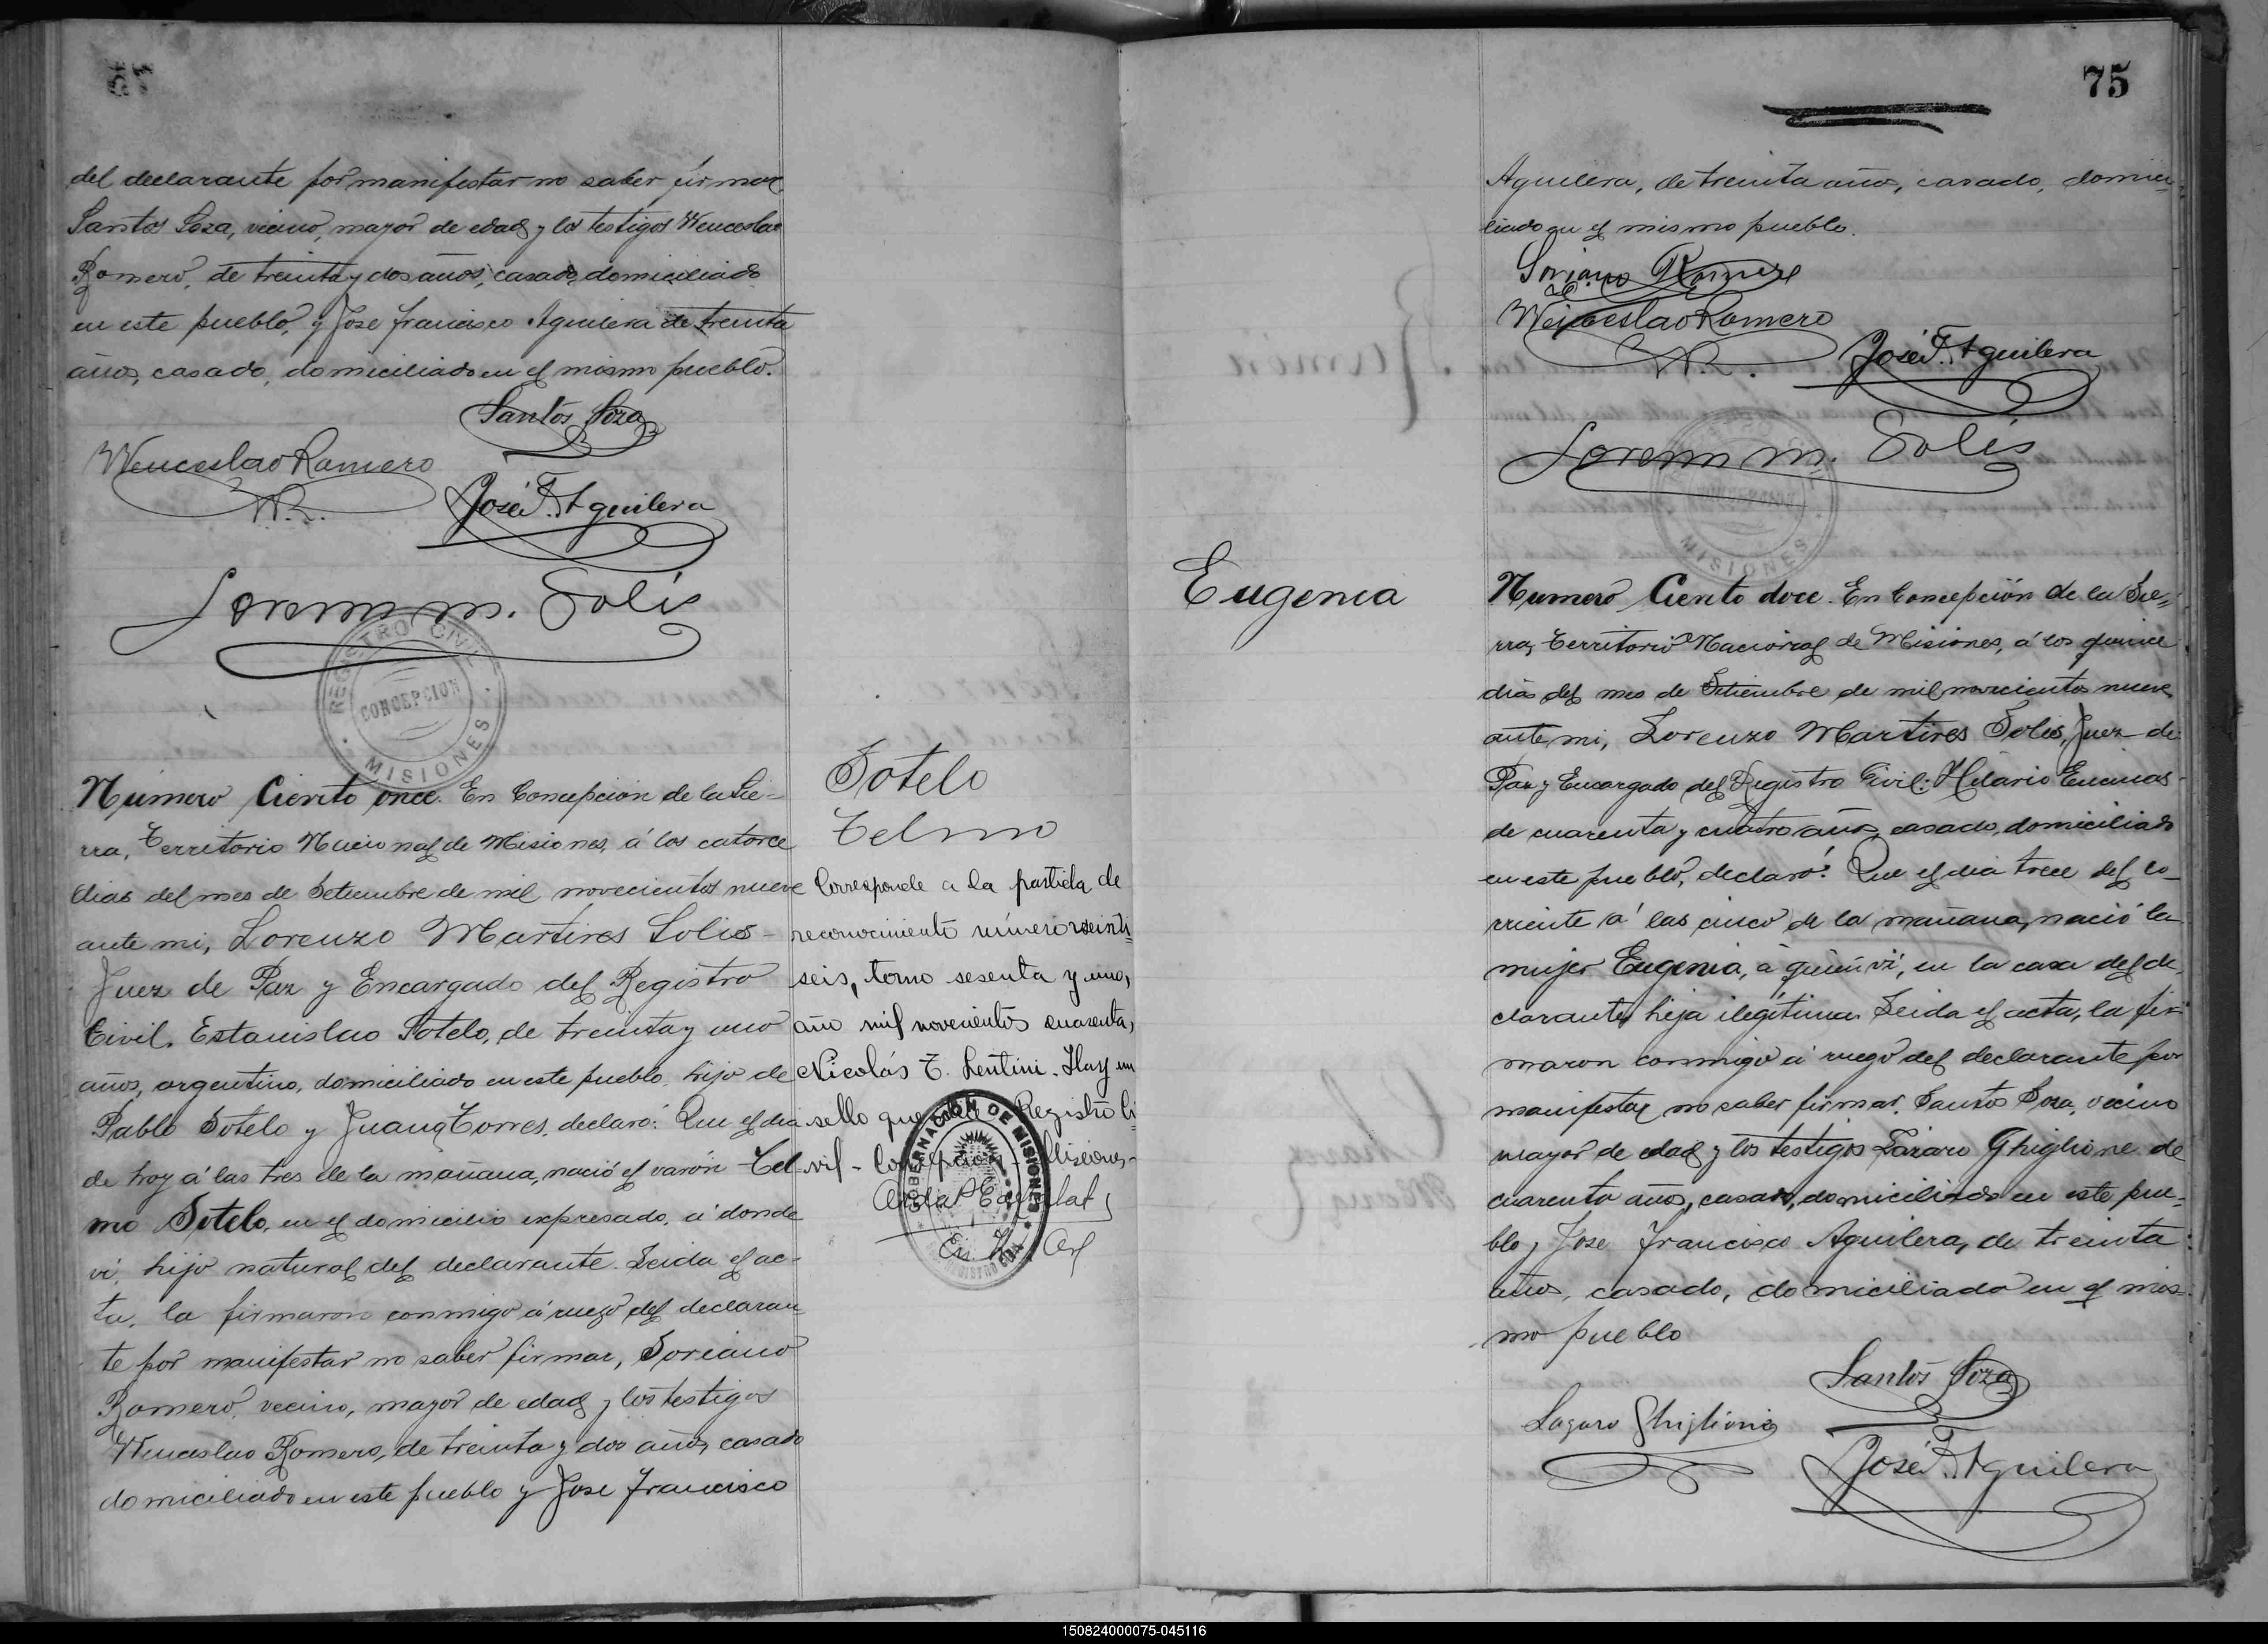 del declarante por manifestar no saber firmar
Santos Soza, vecino, mayor de edad y los testigos Wenceslao
Romero, de treinta y dos años, casado, domiciliado
en este pueblo, y Jose Francisco Aguilera de treinta
años, casado, domiciliado en el mismo pueblo.
Santos Soza
Wenceslao Romero
W.R.
José F. Aguilera
Lorenzo M. Solis
REGISTRO CIVIL
CONCEPCION
MISIONES
Número Ciento once. En Concepción de la Sie-
rra, Territorio Nacional de Misiones, á los catorce
dias del mes de Setiembre de mil novecientos nueve
ante mi, Lorenzo Martires Solis -
Juez de Paz y Encargado del Registro
Civil. Estanislao Sotelo, de treinta y uno
años, argentino, domiciliado en este pueblo, hijo de
Pablo Sotelo y Juana Torres, declaró: Que el dia
de hoy á las tres de la mañana, nació el varón Tel-
mo Sotelo, en el domicilio expresado, á donde
vi, hijo natural del declarante. Leida el ac-
ta, la firmaron conmigo á ruego del declaran
te por manifestar no saber firmar, Soriano
Romero, vecino, mayor de edad y los testigos
Wenceslao Romero, de treinta y dos años, casado
domiciliado en este pueblo y Jose Francisco
Sotelo
Telmo
Corresponde a la partida de
reconocimiento número veinti-
seis, tomo sesenta y uno,
año mil novecientos cuarenta,
Nicolás T. Lentini. Hay un
sello que dice Registro Ci
vil - Concepción - Misiones -
GOBERNACIÓN DE MISIONES
75
Aguilera, de treinta años, casado, domici-
liado en el mismo pueblo.
Soriano Romero
Wenceslao Romero
W.R.
José F. Aguilera
Lorenzo M. Solis
CONCEPCION
MISIONES
Eugenia
Número Ciento doce. En Concepción de la Sie-
rra, Territorio Nacional de Misiones, á los quince
dias del mes de Setiembre de mil novecientos nueve,
ante mi, Lorenzo Martires Solis, Juez de
Paz y Encargado del Registro Civil: Hilario Encinas
de cuarenta y cuatro años, casado, domiciliado
en este pueblo, declaró: Que el dia trece del co-
rriente á las cinco de la mañana, nació la
mujer Eugenia, á quien vi, en la casa del de-
clarante, hija ilegítima. Leida el acta, la fir-
maron conmigo á ruego del declarante por
manifestar no saber firmar, Santos Soza, vecino
mayor de edad y los testigos Lázaro Ghiglione de
cuarenta años, casado, domiciliado en este pue-
blo y Jose Francisco Aguilera, de treinta
años, casado, domiciliado en el mis-
mo pueblo
Santos Soza
Lazaro Ghiglione
José F. Aguilera
150824000075-045116